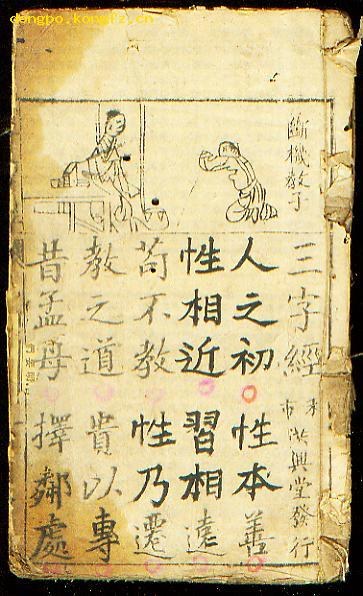 dongpo.kongfz.cn
斷機教子
三字經 市洪興堂發行
人之初 性本善
性相近 習相遠
苟不教 性乃遷
教之道 貴以專
昔孟母 擇鄰處